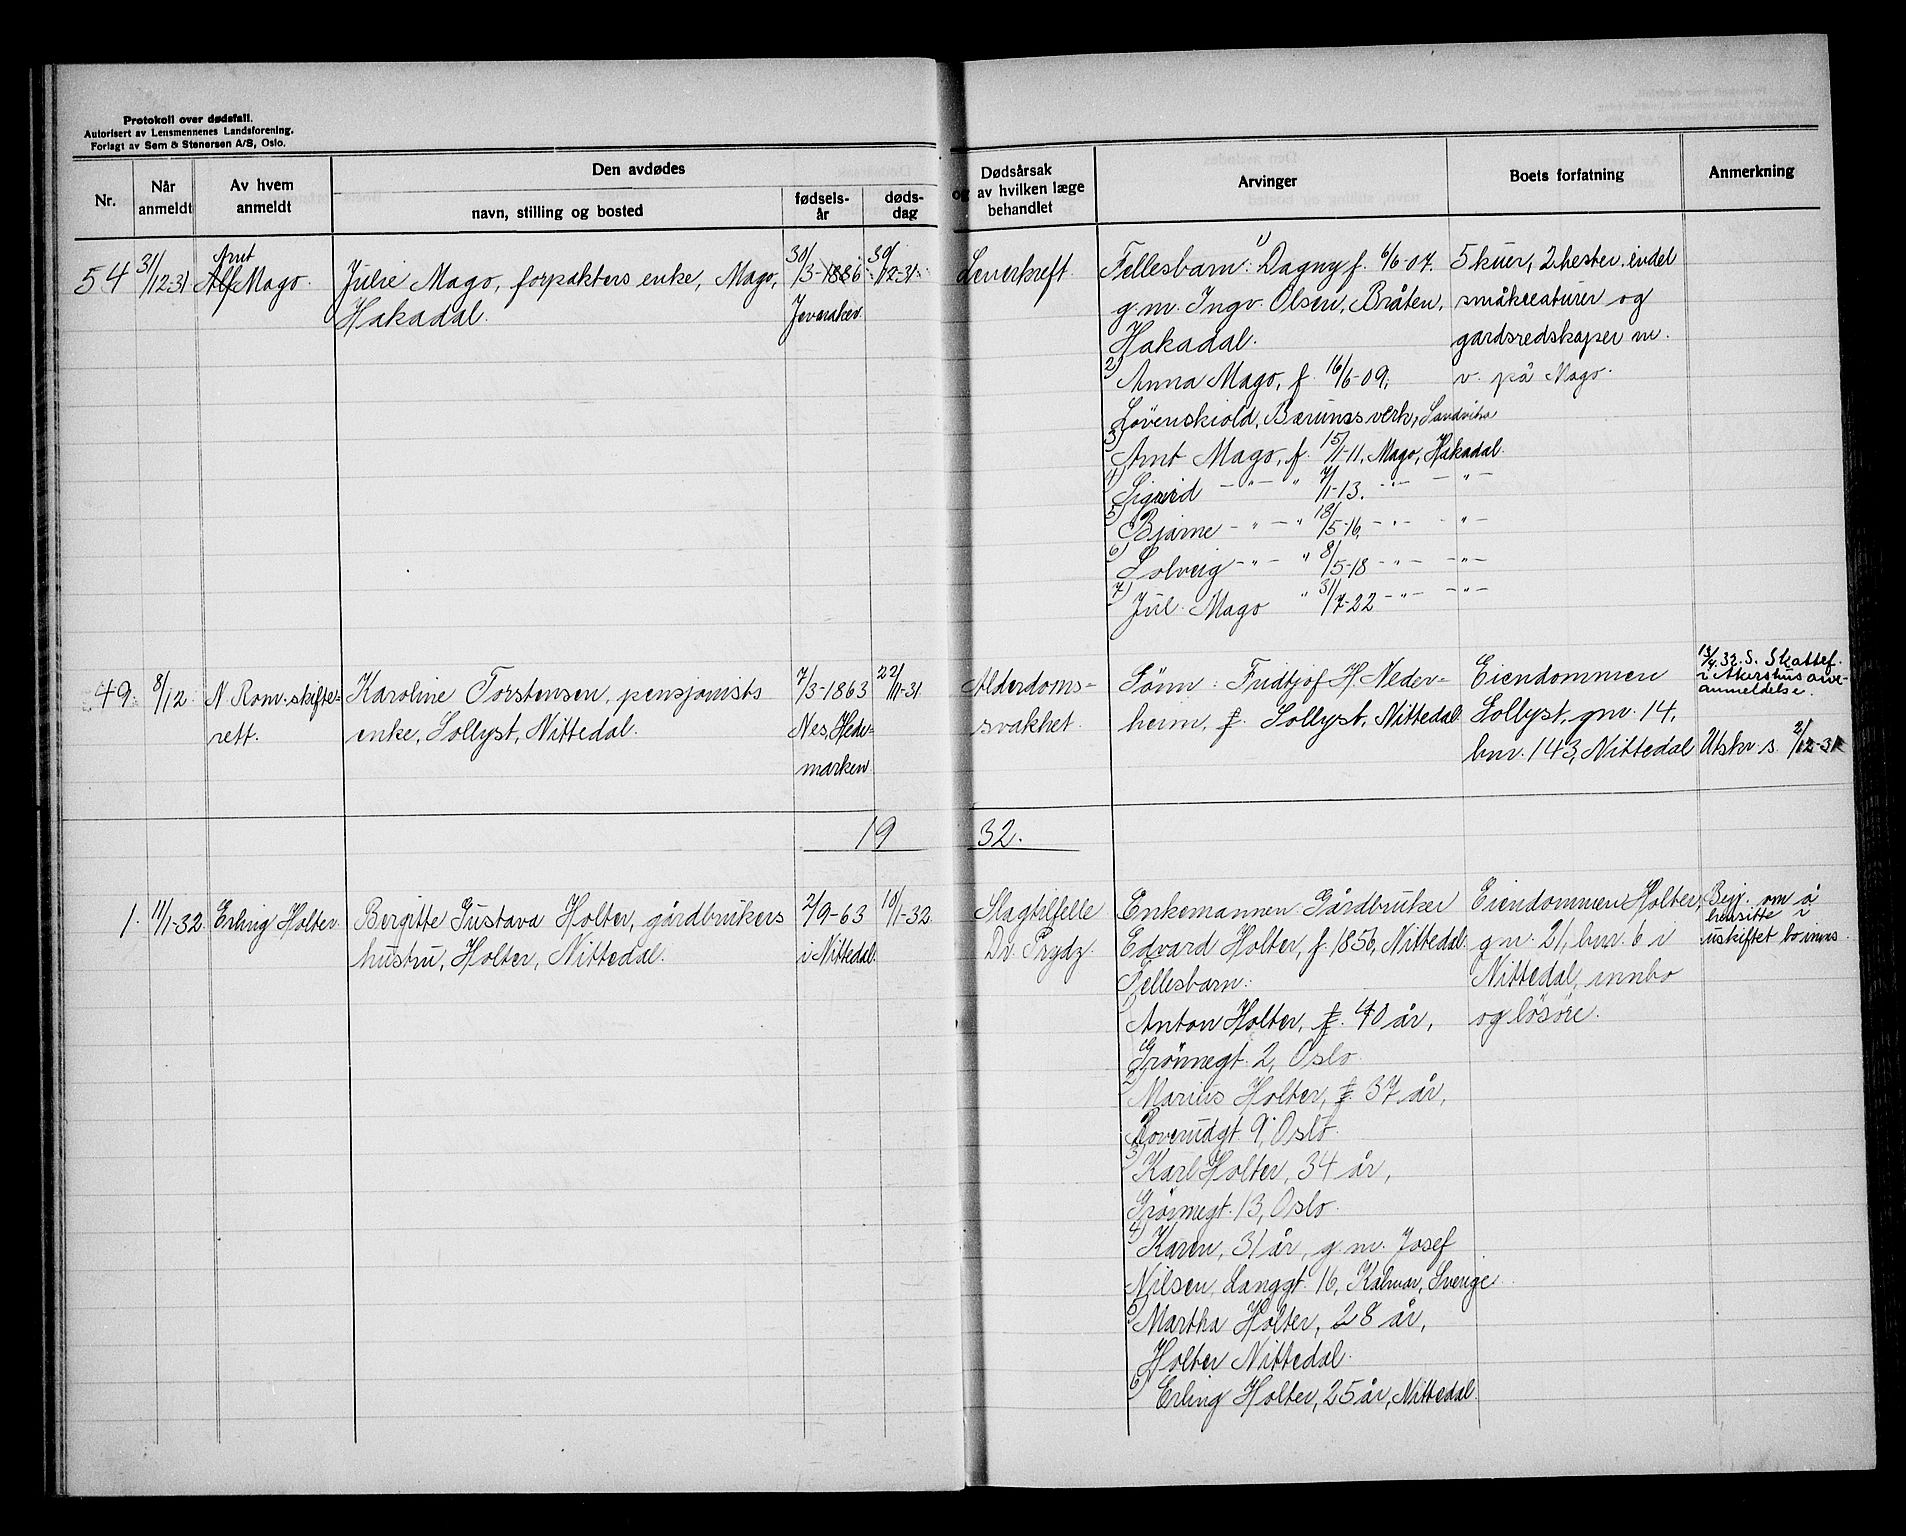 Protokoll over dødsfall.
Autorisert av Lensmennenes Landsforening.
Forlagt av Sem & Stenersen A/S, Oslo.
Nr.
Når anmeldt
Av hvem anmeldt
Den avdødes
navn, stilling og bosted
fødsels-år
døds-dag
Dødsårsak og av hvilken læge behandlet
Arvinger
Boets forfatning
Anmerkning
54
31/12-31
Arnt
Alf Mago.
Julie Mago, forpakters enke, Mago,
Hakadal.
30/3-1886
Jevnaker
30/12-31.
Leverkreft
Fellesbarn: 1) Dagny f. 6/6-07.
g.m. Ingv. Olsen, Bråten,
Hakadal.
2) Anna Mago, f. 16/6-09,
Løvenskiold, Bærumsverk, Sandvika
3) Arnt Mago, f. 15/1-11, Mago, Hakadal.
4) Sigurd - " - " 7/1-13. - " - - " -
5) Bjarne - " - " 18/5-16, - " - - " -
6) Solveig - " - " 8/5-18 - " - - " -
7) Jul. Mago " 31/7-22 - " - - " -
5 kuer, 2 hester, endel
småkreaturer og
gårdsredskaper m.
v. på Mago.
49.
8/12.
N. Rom. skifte-
rett.
Karoline Torstensen, pensjonists
enke, Sollyst, Nittedal.
7/3-1863
Nes, Hede-
marken
22/11-31
Alderdoms-
svakhet.
Sønn: Fridtjof H. Neder-
heim, f. Sollyst, Nittedal
Eiendommen
Sollyst, gnr. 14,
bnr. 143, Nittedal
13/4.32. S. Skattef.
i Akershus arve-
anmeldelse.
Utskr s. 2/12-31
19 32.
1.
11/1-32
Erling Holter.
Bergitte Gustava Holter, gårdbrukers
hustru, Holter, Nittedal.
2/9-63
i Nittedal.
10/1-32
Slagtilfelle
Dr. Prydz
Enkemannen: Gårdbruker
Edvard Holter, f. 1856, Nittedal.
Fellesbarn:
1) Anton Holter, f. 40 år,
Grønnegt. 2, Oslo.
2) Marius Holter, f. 37 år,
Roverudgt. 9, Oslo.
3) Karl Holter, 34 år,
Grønnegt. 13, Oslo.
4) Karen, 31 år, g.m. Josef
Nilsen, Langgt. 16, Kalmar, Sverige
5) Martha Holter, 28 år,
Holter Nittedal.
6) Erling Holter, 25 år, Nittedal.
Eiendommen Holter,
gnr. 21, bnr. 6 i
Nittedal, innbo
og løsøre.
Bevj. om å
hensitte i
uskiftet bo inns.